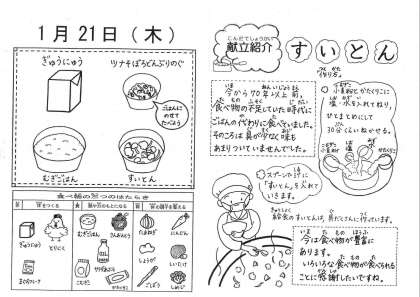 1月21日(木)
ぎゅうにゅう
ツナそぼろどんぶりのぐ
ごはんに
のせて
たべよう
むぎごはん
すいとん
食べ物の三つのはたらき
ぎゅうにゅう
とりにく
むぎごはん
さんおんとう
たまねぎ
にんじん
しょうが
しいたけ
しめじ
こんだてしょうかい
献立紹介
すいとん
つく かた
作り方。
① 小麦粉とかたくりこに
塩・水を入れてねり、
ひとまとめにして
30分くらいねかせる。
いま ねんいじょうまえ
今から70年以上前、
食べ物の不足していた時代に
ごはんの代わりに食べていました。
そのころは具が少なく味も
あまりついていませんでした。
② スプーンで汁に
「すいとん」を入れて
いきます。
給食のすいとんは、具だくさんに作っています。
今は食べ物が豊富に
あります。
いろいろな食べ物が食べられる
ことに感謝したいですね。